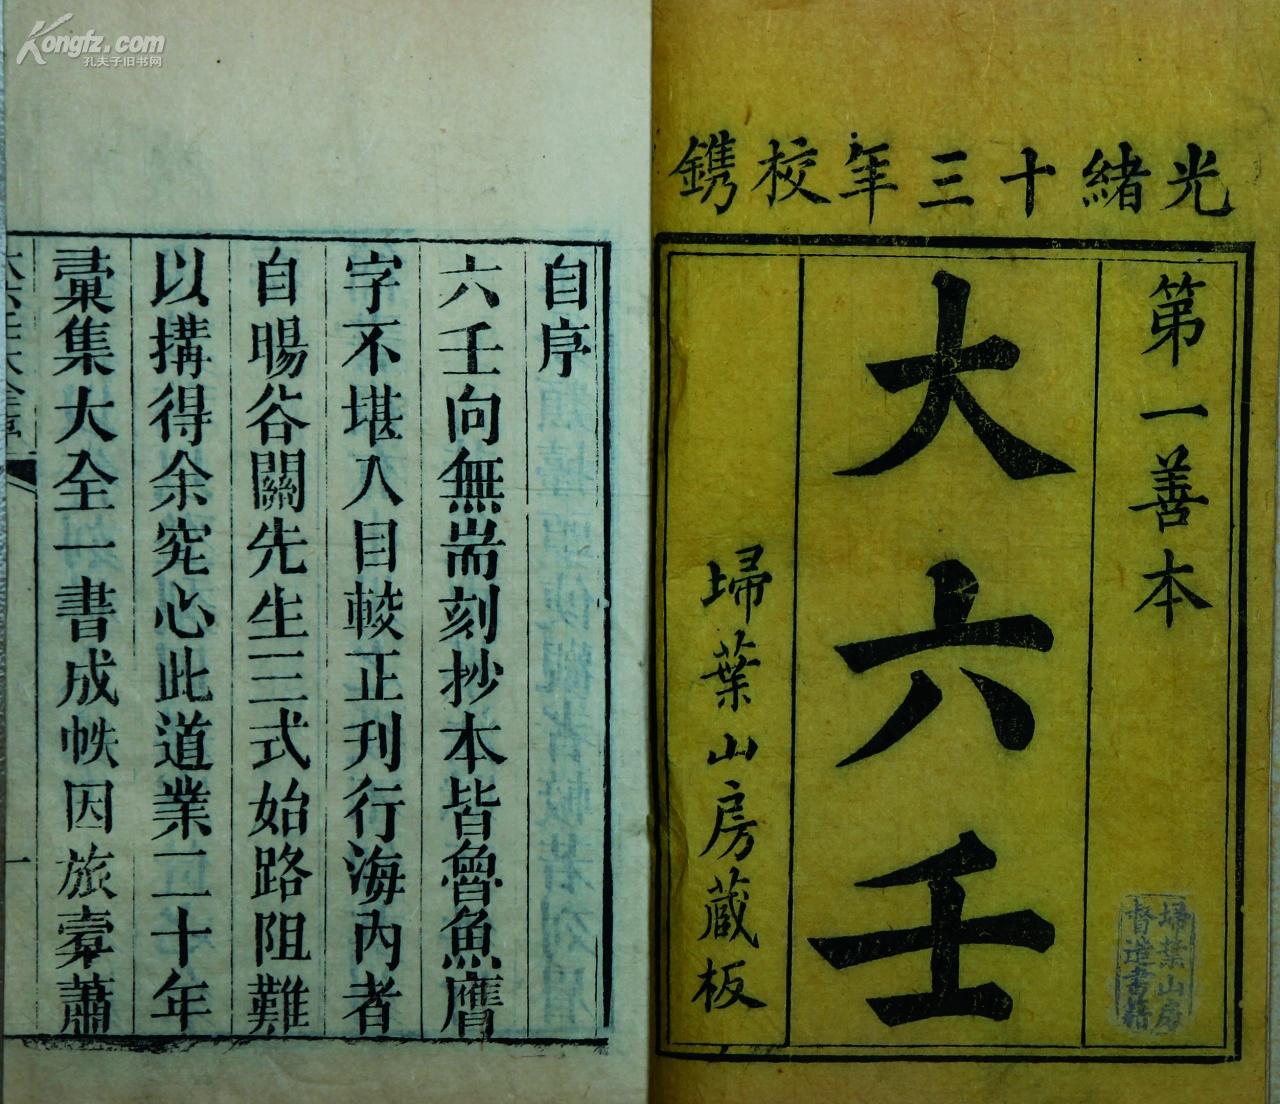 光緒十三年校鐫
第一善本
大六壬
埽葉山房藏板
埽葉山房
督造書籍
自序
六壬向無耑刻抄本皆魯魚鷹
字不堪入目較正刊行海內者
自暘谷關先生三式始路阻難
以搆得余究心此道業二十年
彚集大全一書成帙因旅橐蕭
一
Kongfz.com
孔夫子旧书网